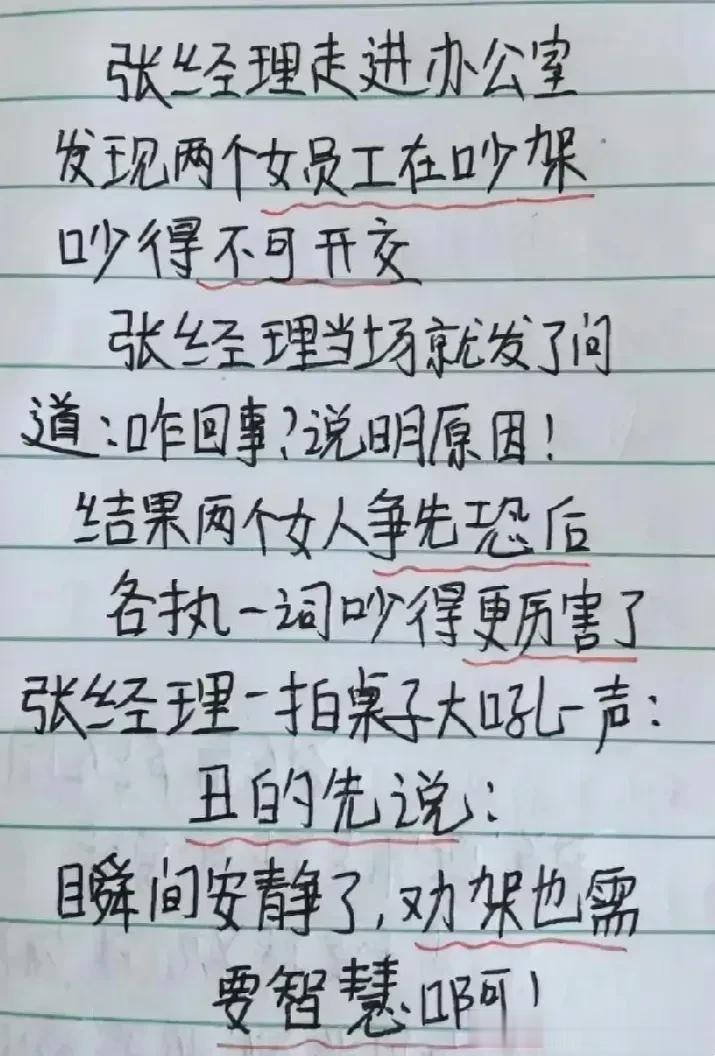 张经理走进办公室
发现两个女员工在吵架
吵得不可开交
张经理当场就发了问
道:咋回事?说明原因!
结果两个女人争先恐后
各执一词吵得更厉害了
张经理一拍桌子大吼一声:
丑的先说:
瞬间安静了,劝架也需
要智慧啊!